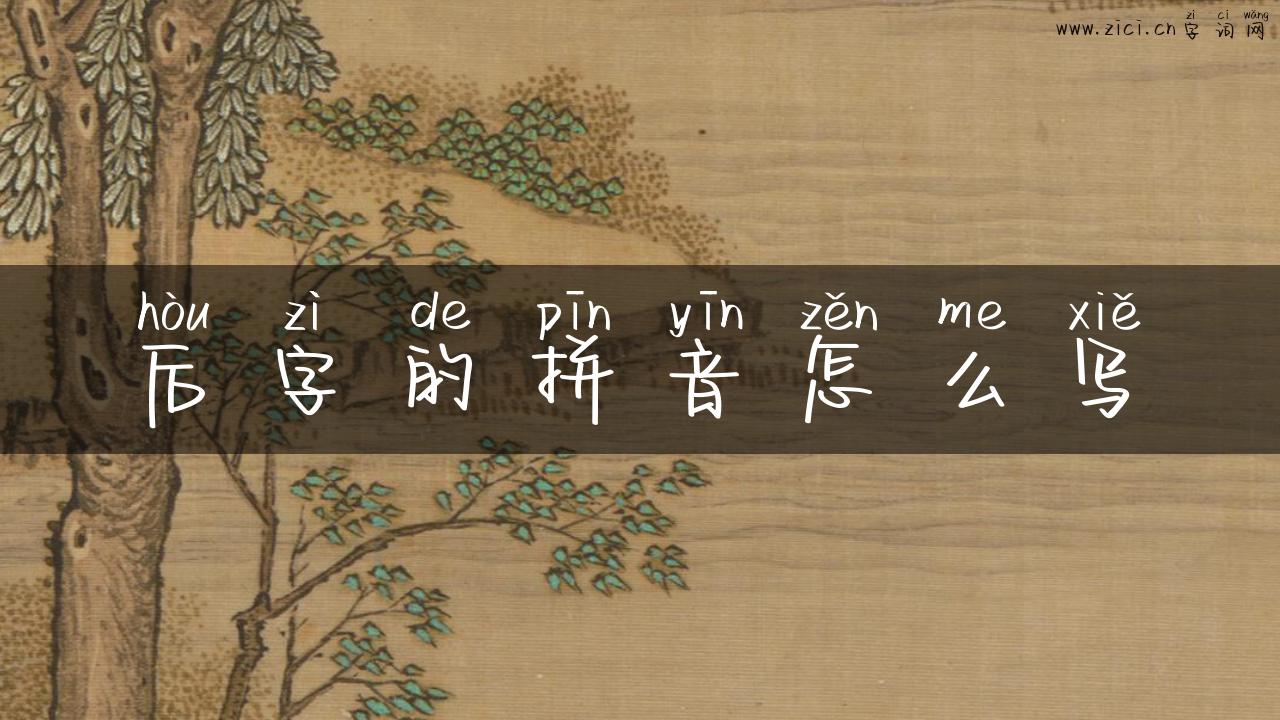 zì cí wǎng
www.zici.cn字词网
hòu zì de pīn yīn zěn me xiě
后字的拼音怎么写